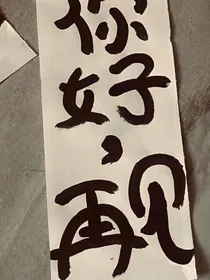 你
好，
再见